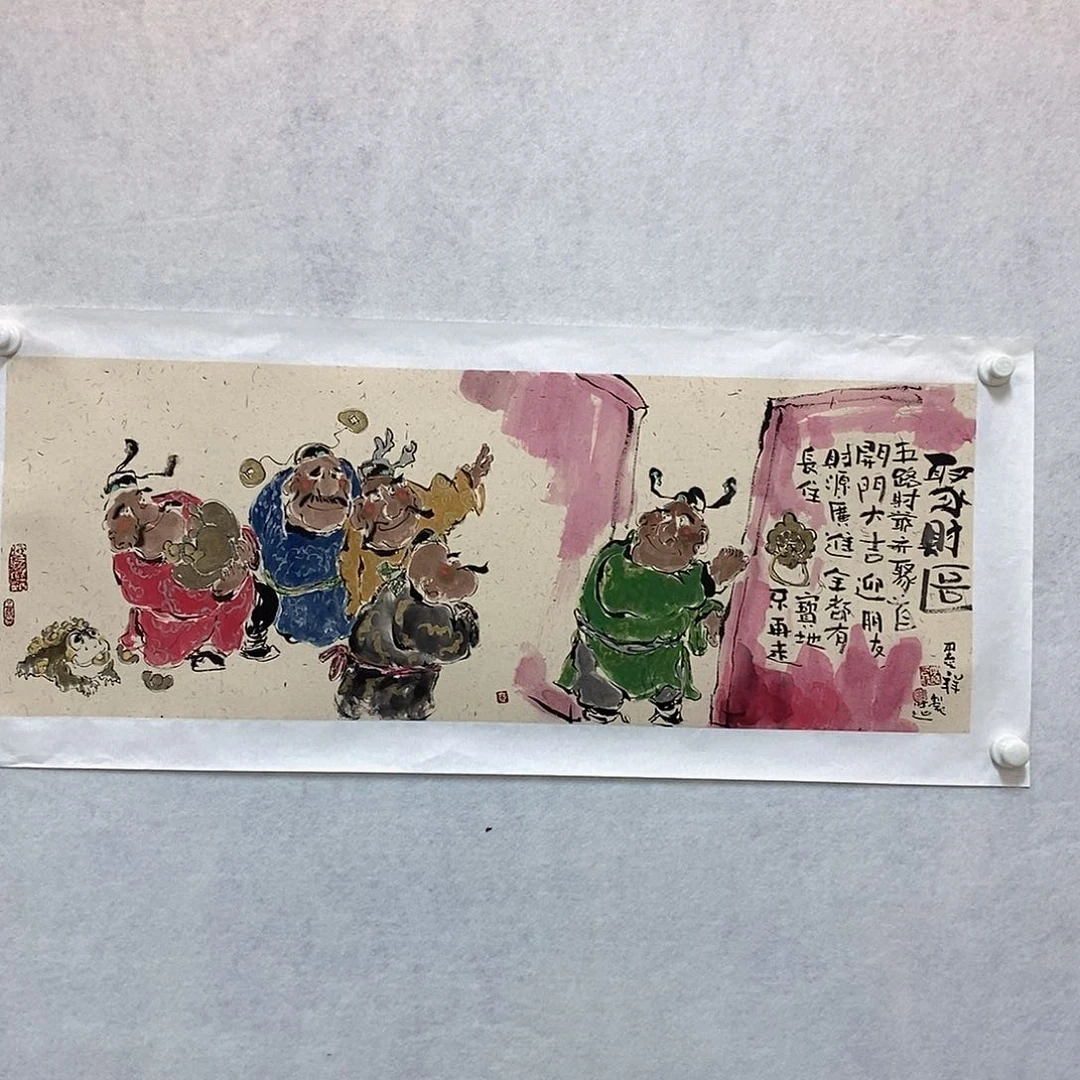 聚財圖
五路財爺齐聚首
開門大吉迎朋友
財源廣進全都有
長住寶地
不再走
祥
製